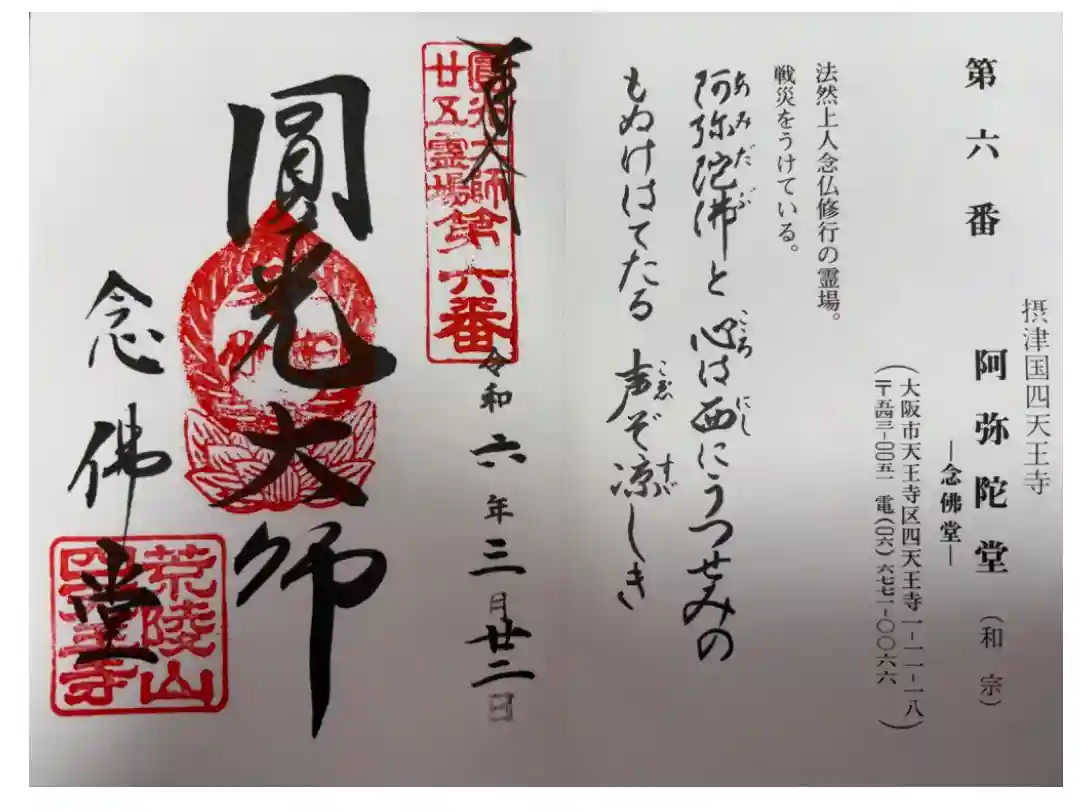 摂津国四天王寺
第六番 阿弥陀堂(和宗)
―念佛堂―
(大阪市天王寺区四天王寺一-一一-一八
〒五四三-〇〇五一 電(〇六)六七七一-〇〇六六)
法然上人念仏修行の霊場。
戦災をうけている。
阿弥陀佛と 心は西にうつせみの
あみだぶ こころ にし
もぬけはてたる 声ぞ涼しき
こゑ すゞ
奉拝
圓光大師
廿五霊場第六番
令和六年三月廿二日
圓光大師
念佛堂
荒陵山
四天王寺